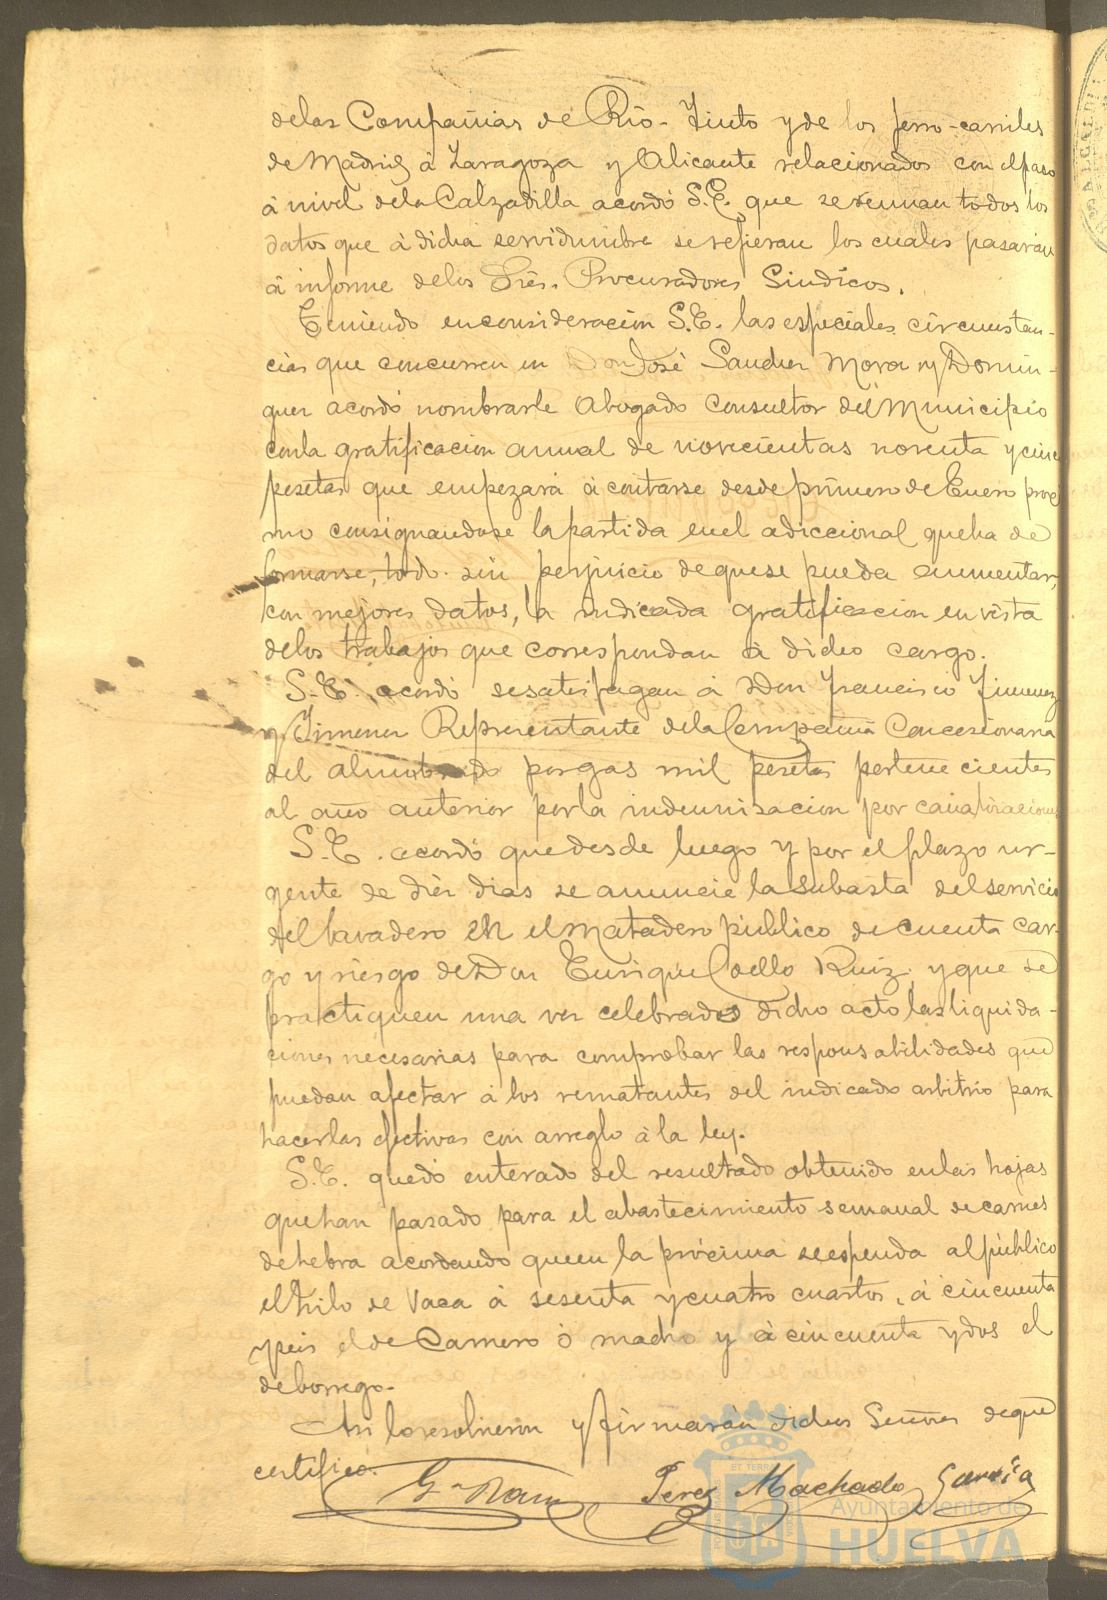 delas Compañias de Rio-Tinto y de los ferro-carriles
de Madrid á Zaragoza y Alicante relacionados con el paso
á nivel dela Calzadilla acordó S.E. que se reunan todos los
datos que á dicha servidumbre se refieran los cuales pasarán
á informe delos Sres. Procuradores Sindicos.
Teniendo en consideracion S.E. las especiales circunstan-
cias que concurren en Don José Sanchez Mora y Domin-
guez acordó nombrarle Abogado Consultor del Municipio
con la gratificacion annual de novecientas noventa y cinco
pesetas que empezará á contarse desde primero de Enero proxi
mo consignandose la partida en el adiccional que ha de
formarse, todo sin perjuicio de que se pueda aumentar,
con mejores datos, la indicada gratificacion en vista
delos trabajos que correspondan á dicho cargo.
S.E. acordó se satisfagan á Don Francisco Jimenez
y Jimenez Representante dela Compañia Concesionaria
del alumbrado por gas mil pesetas pertenecientes
al año anterior por la indemnisacion por
S.E. acordó que desde luego y por el plazo ur-
gente de diez dias se anuncie la subasta del servicio
del lavadero en el Matadero público de cuenta car-
go y riesgo de Don Enrique Coello Ruiz, y que se
practiquen una vez celebrado dicho acto las liquida-
ciones necesarias para comprobar las responsabilidades que
puedan afectar á los rematantes del indicado arbitrio para
hacerlas efectivas con arreglo á la ley.
S.E. quedó enterado del resultado obtenido en las hojas
que han pasado para el abastecimiento semanal de carnes
de hebra acordando que en la prócima se espenda al público
el kilo de Vaca á sesenta y cuatro cuartos, á cincuenta
y seis el de Carnero ó macho y á cincuenta y dos el
de borrego.
Asi lo resolvieron y firmarán dichos Señores de que
certifico.
Perez Machado Garcia
Ayuntamiento de
HUELVA